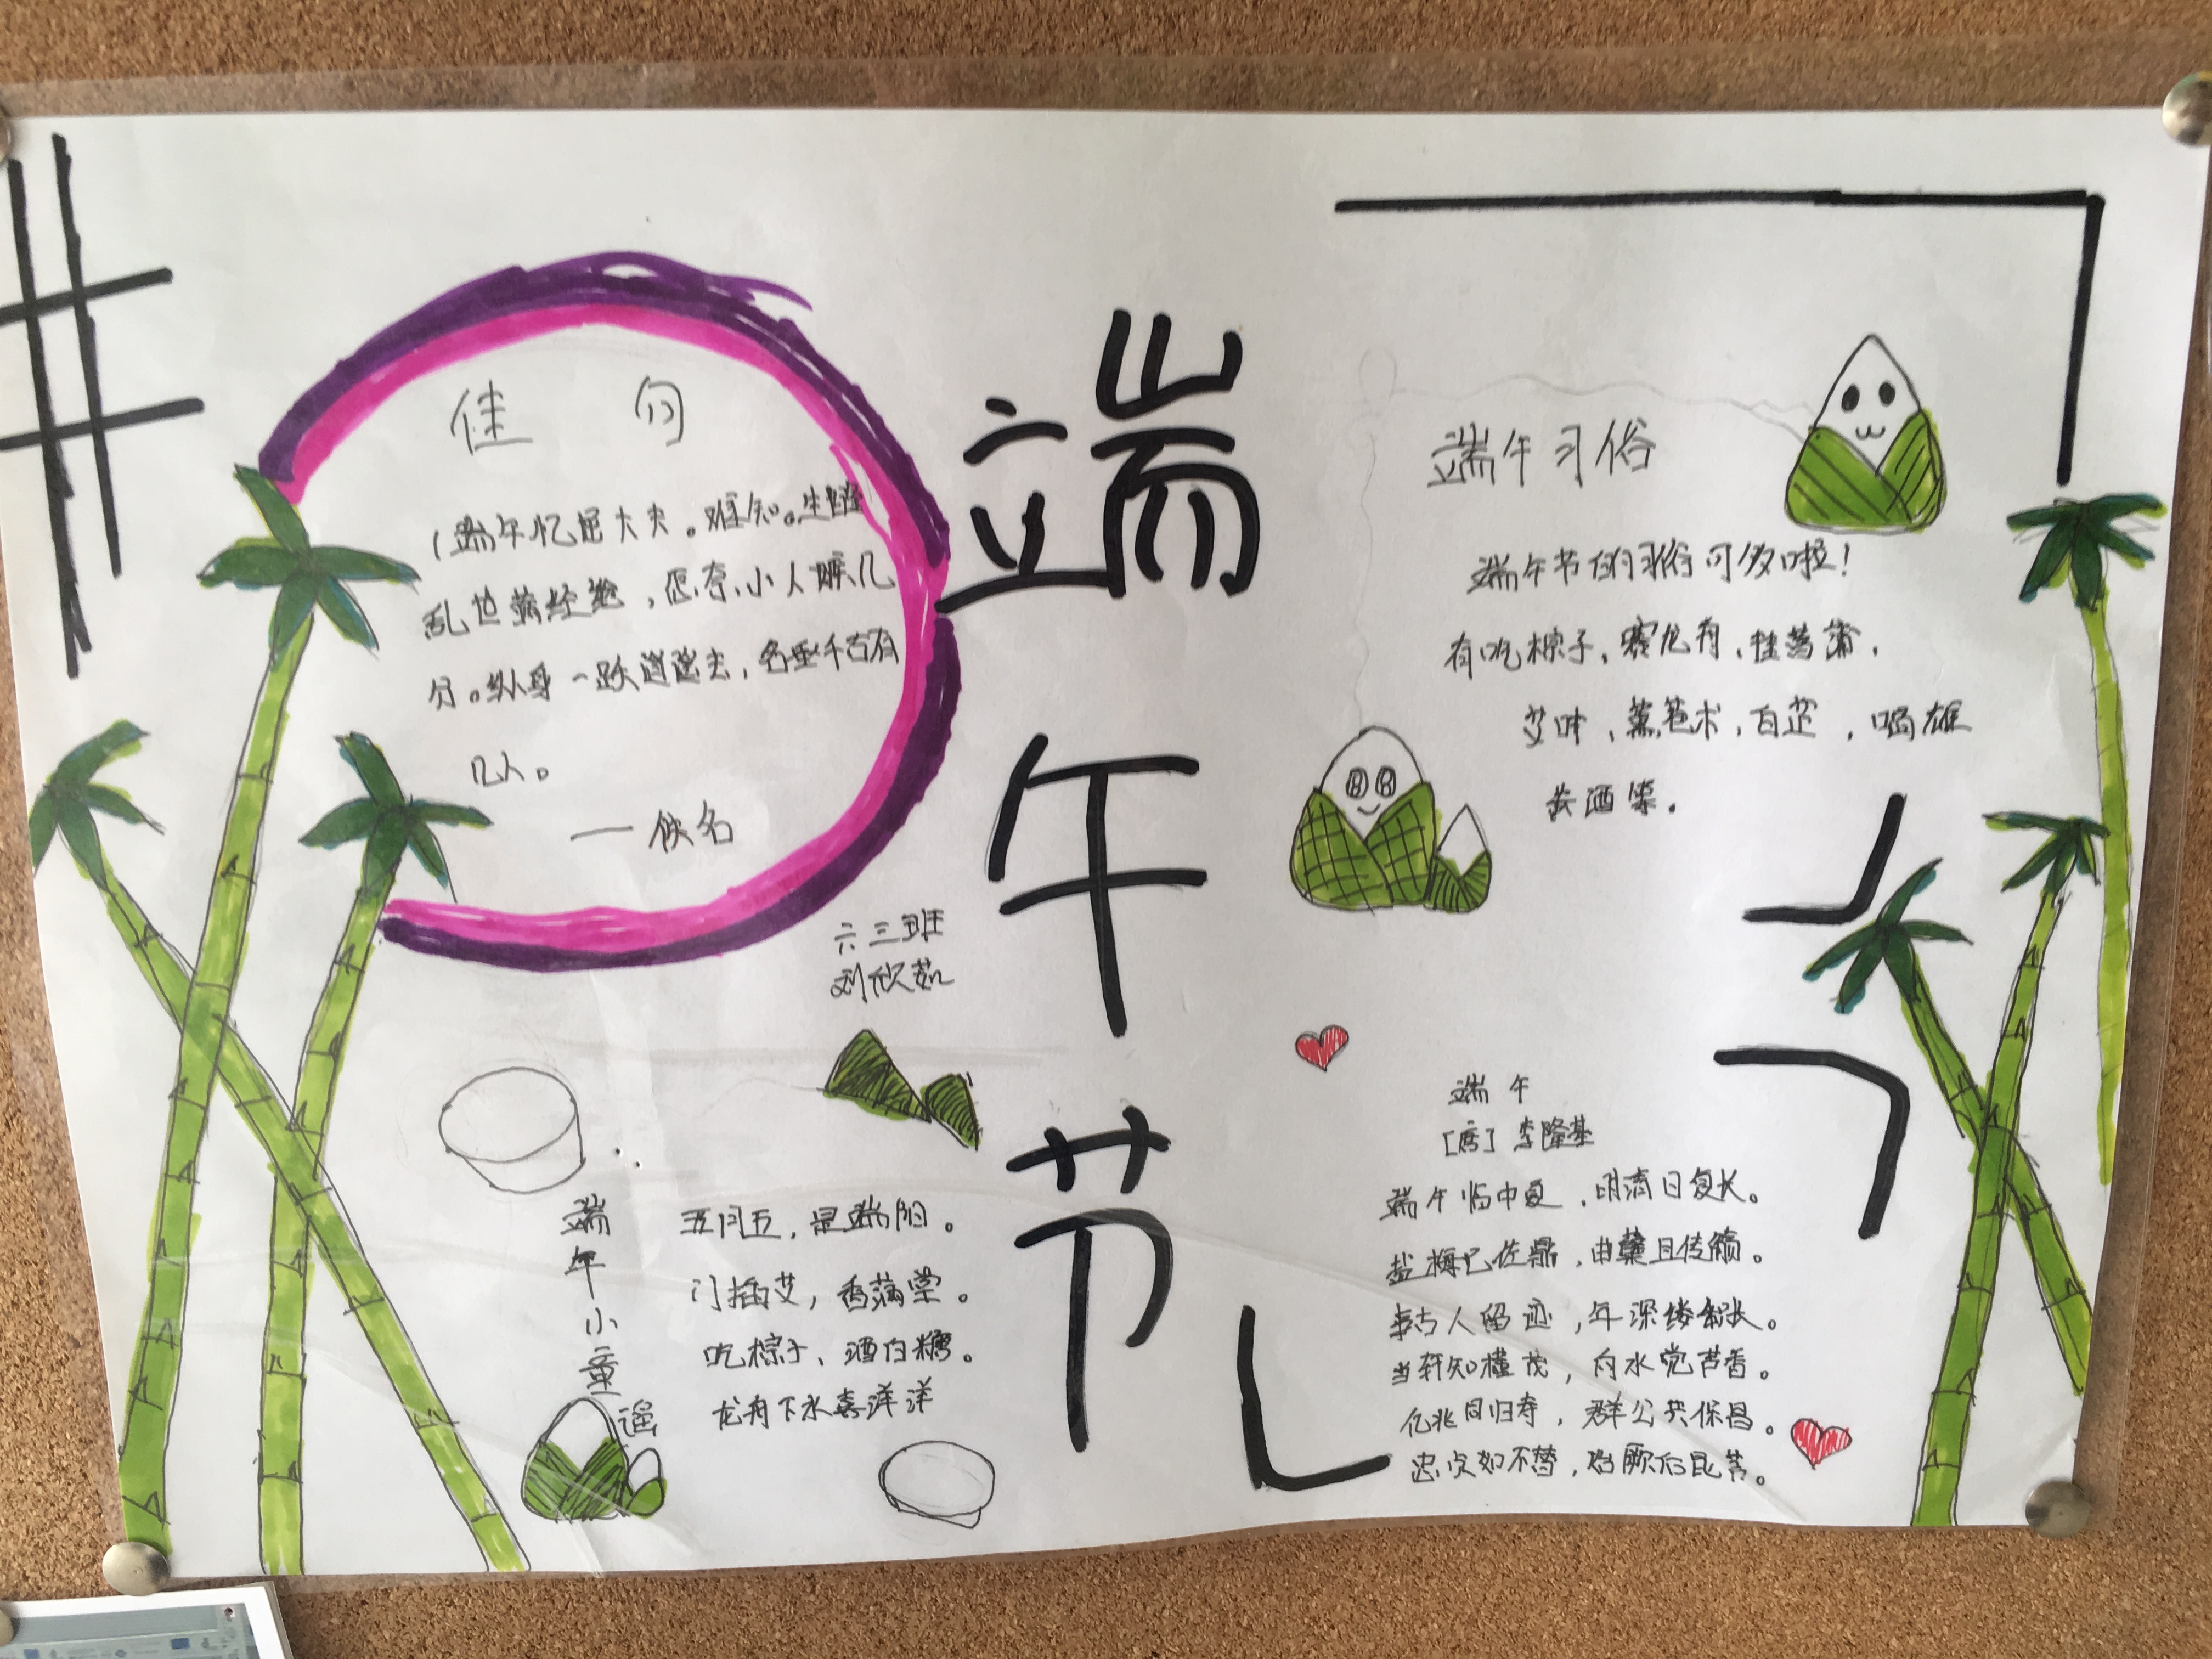 佳 句
1端午忆屈大夫。难知。生醒
乱世萧经绝，忍奈小人嫉几
分。纵身一跃逍遥去，名垂千古有
几人。
——佚名
六三班
刘欣茹
端
午
节
端午习俗
端午节的习俗可多啦！
有吃棕子、赛龙舟、挂菖蒲、
艾叶，薰苍术，白芷，喝雄
黄酒等.
端午小童谣
五月五，是端阳。
门插艾，香满堂。
吃棕子、洒白糖。
龙舟下水喜洋洋
端 午
[唐] 李隆基
端午临中夏，时清日复长。
盐梅已佐鼎，曲蘖且传觞。
事古人留迹，年深缕积长。
当轩知槿茂，向水觉芦香。
亿兆同归寿，群公共保昌。
忠贞如不替，贻厥后昆芳。